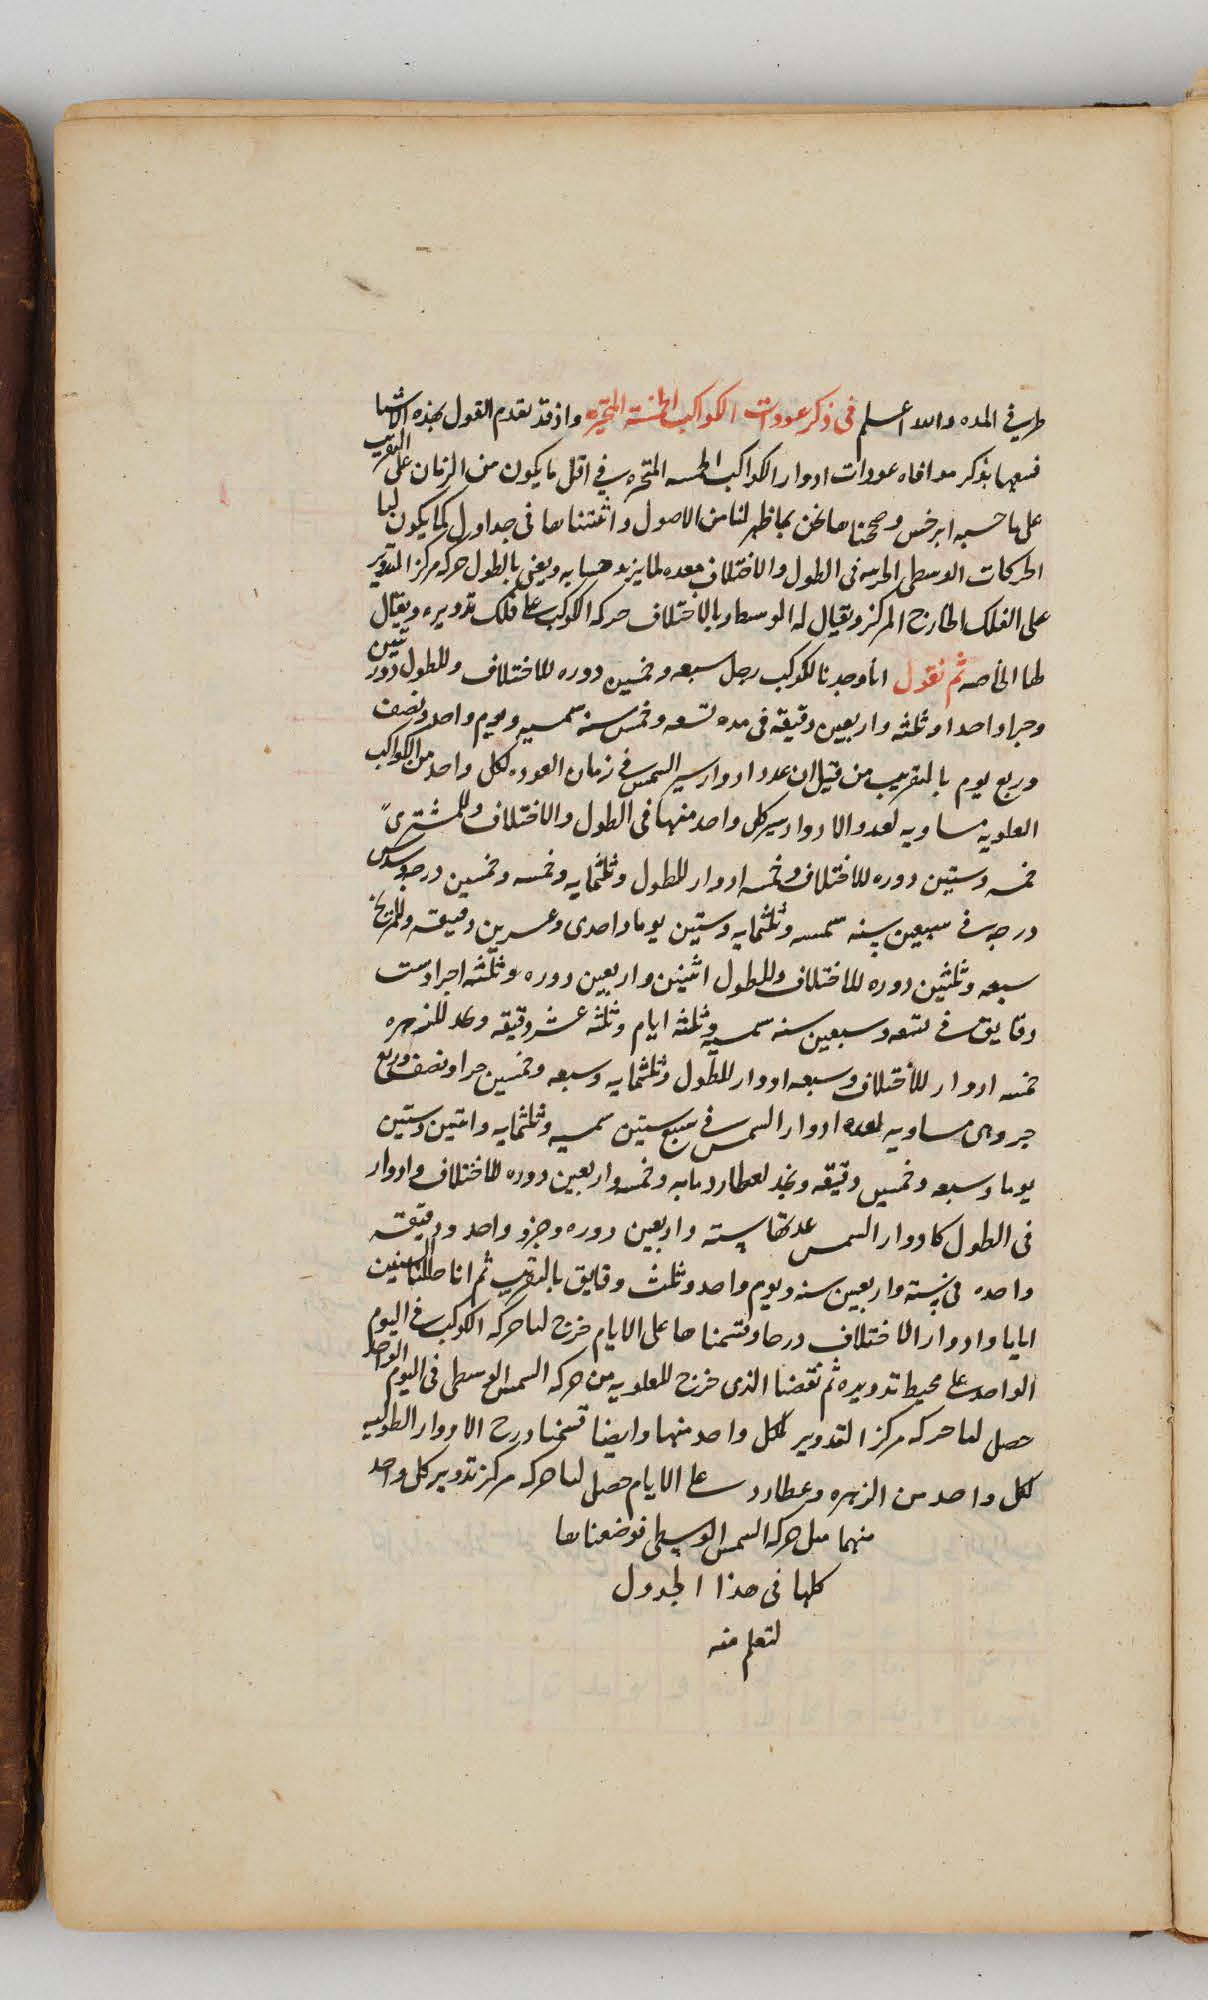 طرفي المده والله اعلم في ذكر عودات الكواكب الخمسة المتحيره واذ قد تقدم القول بهذه الاشيا
بذكر موافاه عودات ادوار الكواكب الخمسه المتحيره في اقل ما يكون من الزمان على التقريب
على ما حسبه ابرخس وصححناها نحن بما ظهر لنا من الاصول واثبتناها في جداول كما يكون لنا
الحركات الوسطى الجزييه في الطول والاختلاف معده لما يزيد حسابه ويعنى بالطول حركه مركز التدوير
على الفلك الخارج المركز ويقال له الوسط وبالاختلاف حركه الكوكب على فلك تدويره ويقال
لها الخاصه ثم نقول انا وجدنا لكوكب زحل سبعه وخمسين دوره للاختلاف وللطول دورتين
وجزا واحدا وثلثه واربعين دقيقه في مده تسعه وخمسين سنه شمسيه ويوم واحد ونصف
وربع يوم بالتقريب من قبل ان عدد ادوار سير الشمس في زمان العوده لكل واحد من الكواكب
العلويه مساويه لعدد الادوار سير كل واحد منها في الطول والاختلاف وللمشترى
خمسه وستين دوره للاختلاف وخمسه ادوار للطول وثلثمايه وخمسه وخمسين درجه وسدس
درجه في سبعين سنه شمسيه وثلثمايه وستين يوما واحدى وعشرين دقيقه وللمريخ
سبعه وثلثين دوره للاختلاف وللطول اثنين واربعين دوره وثلثه اجزا وست
دقايق في تسعه وسبعين سنه شمسيه وثلثه ايام وثلثه عشر دقيقه ونجد للزهره
خمسه ادوار للاختلاف وسبعه ادوار للطول وثلثمايه وسبعه وخمسين جزا ونصف وربع
جزو وهى مساويه لعده ادوار الشمس في سبع سنين شمسيه وثلثمايه واثنين وستين
يوما وسبعه وخمسين دقيقه ونجد لعطارد مايه وخمسه واربعين دوره للاختلاف وادوار
في الطول كادوار الشمس عدتها سته واربعين دوره وجزو واحد ودقيقه
واحده في سته واربعين سنه ويوم واحد وثلث دقايق بالتقريب ثم انا حللنا السنين
اياما وادوار الاختلاف درجا وقسمناها على الايام خرج لنا حركه الكوكب في اليوم
الواحد على محيط تدويره ثم نقصنا الذى خرج للعلويه من حركه الشمس الوسطى في اليوم الواحد
حصل لنا حركه مركز التدوير لكل واحد منها وايضا قسمنا درج الادوار الطوليه
لكل واحد من الزهره وعطارد على الايام حصل لنا حركه مركز تدوير كل واحد
منهما مثل حركه الشمس الوسطى فوضعناها
كلها في هذا الجدول
لتعلم منه